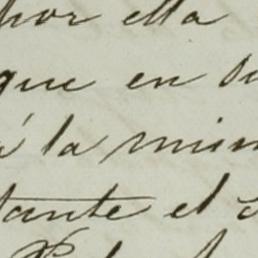 por ella
que en su
á la mism
tante el